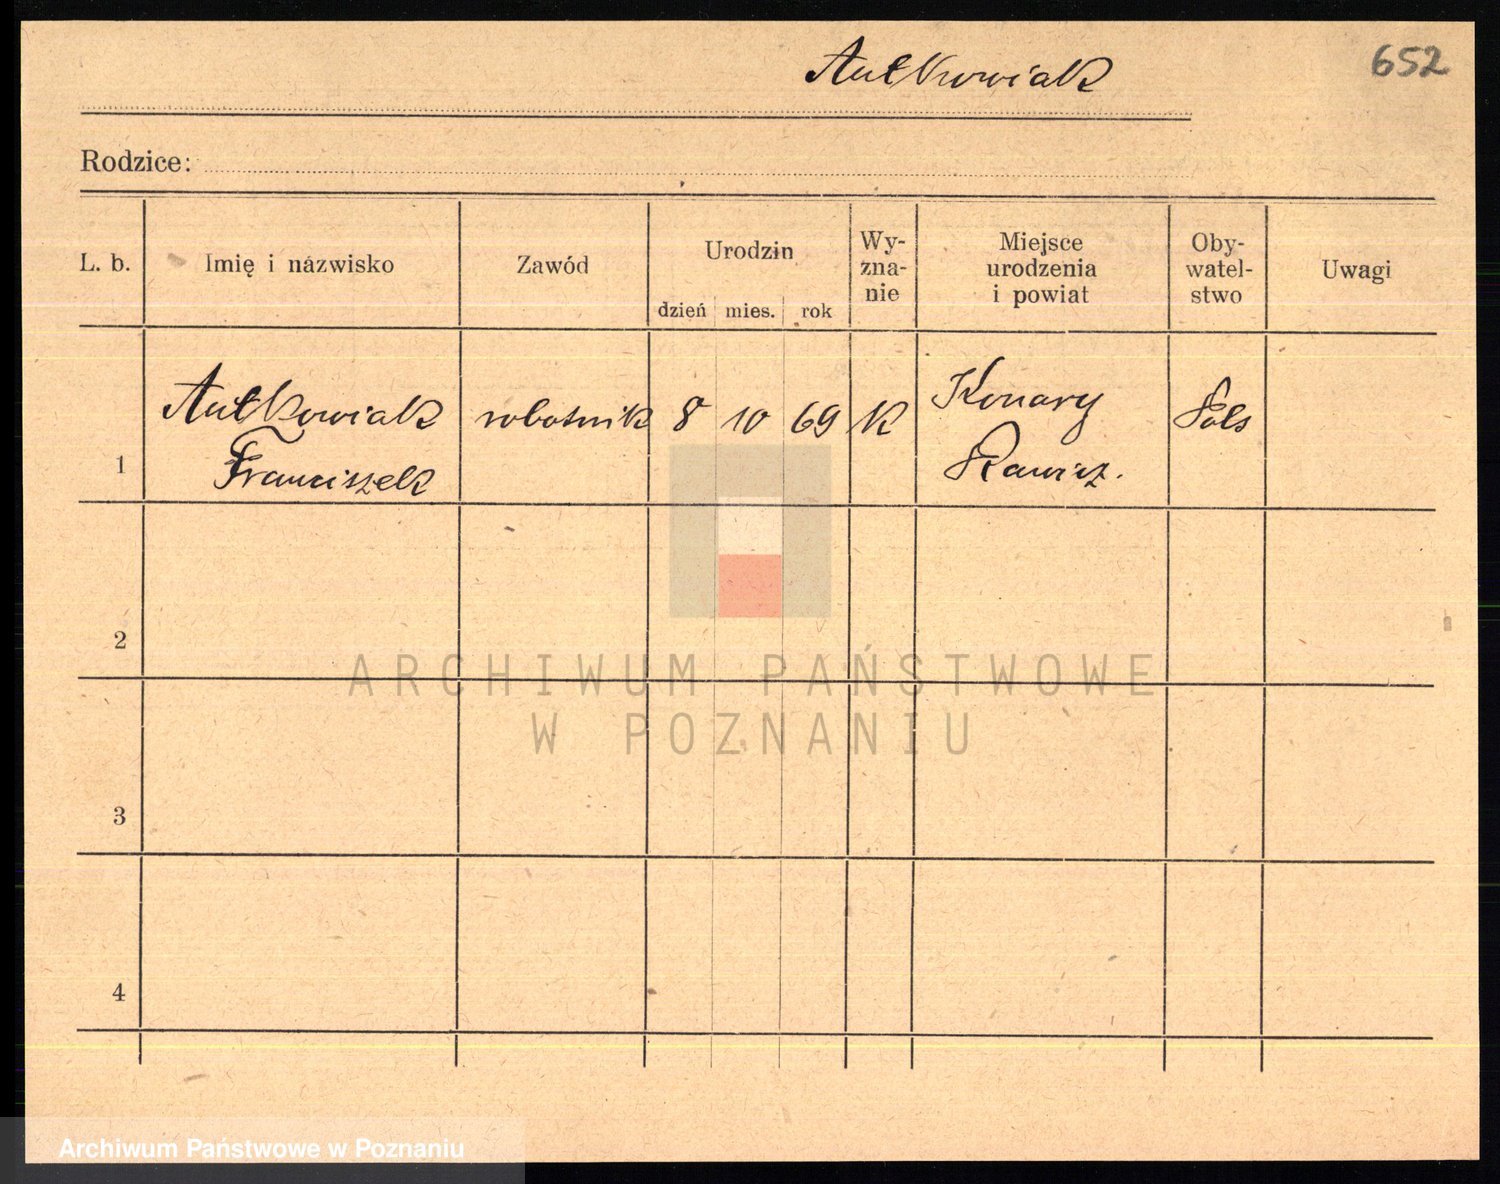 Antkowiak
652
Rodzice:
L. b.
Imię i nazwisko
Zawód
Urodzin
dzień mies. rok
Wy-
zna-
nie
Miejsce
urodzenia
i powiat
Oby-
watel-
stwo
Uwagi
1
Antkowiak
Franciszek
robotnik
8 10 69
K
Konary
Rawicz.
Pols
2
3
4
ARCHIWUM PAŃSTWOWE
W POZNANIU
Archiwum Państwowe w Poznaniu